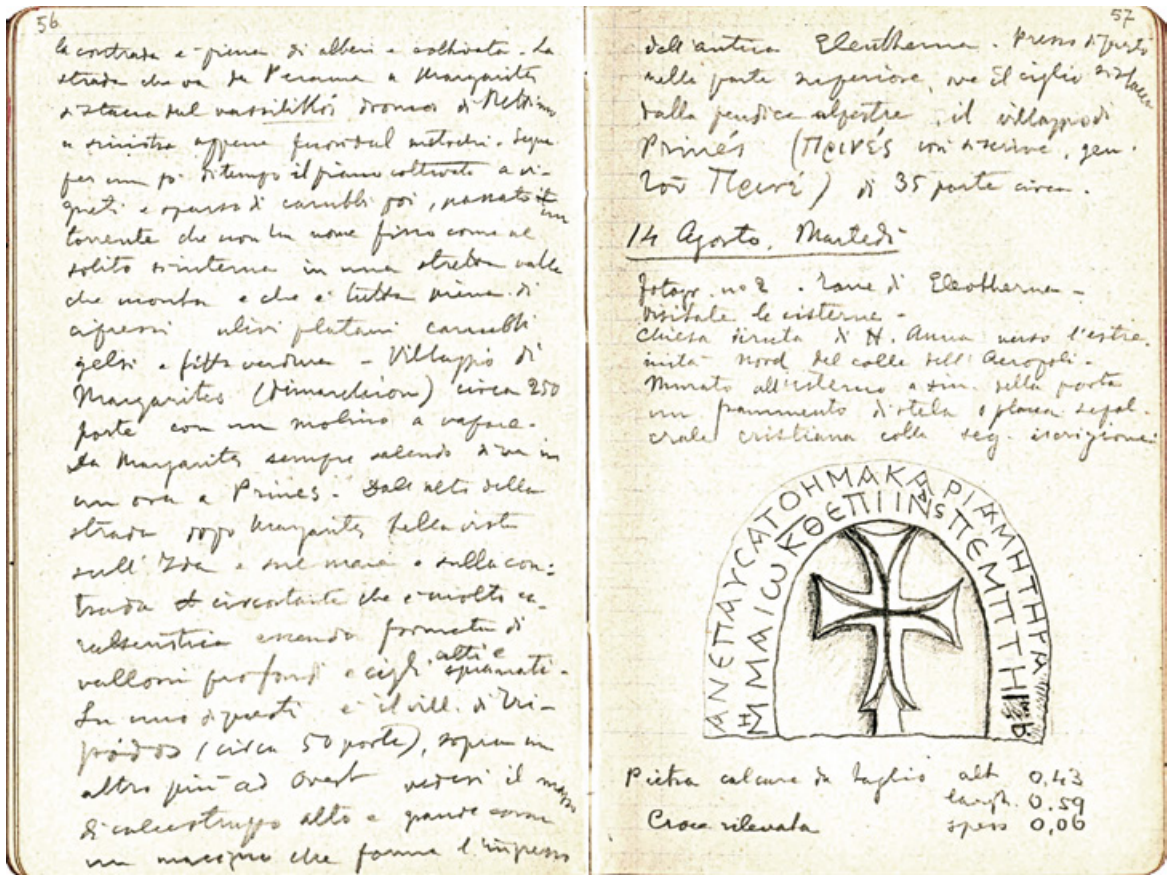 56
la contrada è piena di alberi e coltivata. La
strada che va da Perama a Margarites
si stacca dal vassilikòs dromos di Rettimo
a sinistra appena fuori dal metochi. Segue
per un po' di tempo il piano coltivato a vi-
gneti e sparso di carubbi poi, passato un
torrente che non ha nome fisso come al
solito s'interna in una stretta valle
che monta e che è tutta piena di
cipressi ulivi platani carubbi
gelsi e fitta verdura - Villaggio di
Margarites (dimarcheion) circa 250
porte con un molino a vapore.
Da Margarites sempre salendo si va in
un ora a Prinès. Dall'alto della
strada dopo Margarites bella vista
sull'Ida e sul mare e sulla con-
trada circostante che è molto ca-
ratteristica essendo formata di
valloni profondi e cigli alti e spianati.
In uno di questi è il vill. di Tri-
pòdos (circa 50 porte), sopra un
altro più ad Ovest vedesi il masso
di calcestruzzo alto e grande come
un macigno che forma l'ingresso
57
dell'antica Eleutherna. Presso di questo
nella parte superiore, ove il ciglio si stacca
dalla pendice alpestre, il villaggio di
Prinés (Πρινές così si scrive, gen.
τοῦ Πρινέ) di 35 porte circa.
14 Agosto. Martedì
Fotogr. no 2. Torre di Eleutherna -
Visitate le cisterne -
Chiesa diruta di H. Anna verso l'estre-
mità Nord del colle dell'Acropoli -
Murato all'esterno a sin. della porta
un frammento di stela o placca sepol-
crale cristiana colla seg. iscrizione:
ΑΝΕΠΑΥCΑΤΟΗΜΑΚΑΡΙΑΜΗΤΗΡΑ
ΜΜΑΙѠΚΘΕΠΙΙΝSΠΕΜΠΤΗ
Pietra calcare da taglio alt. 0,43
largh. 0.59
Croce rilevata spess 0,06